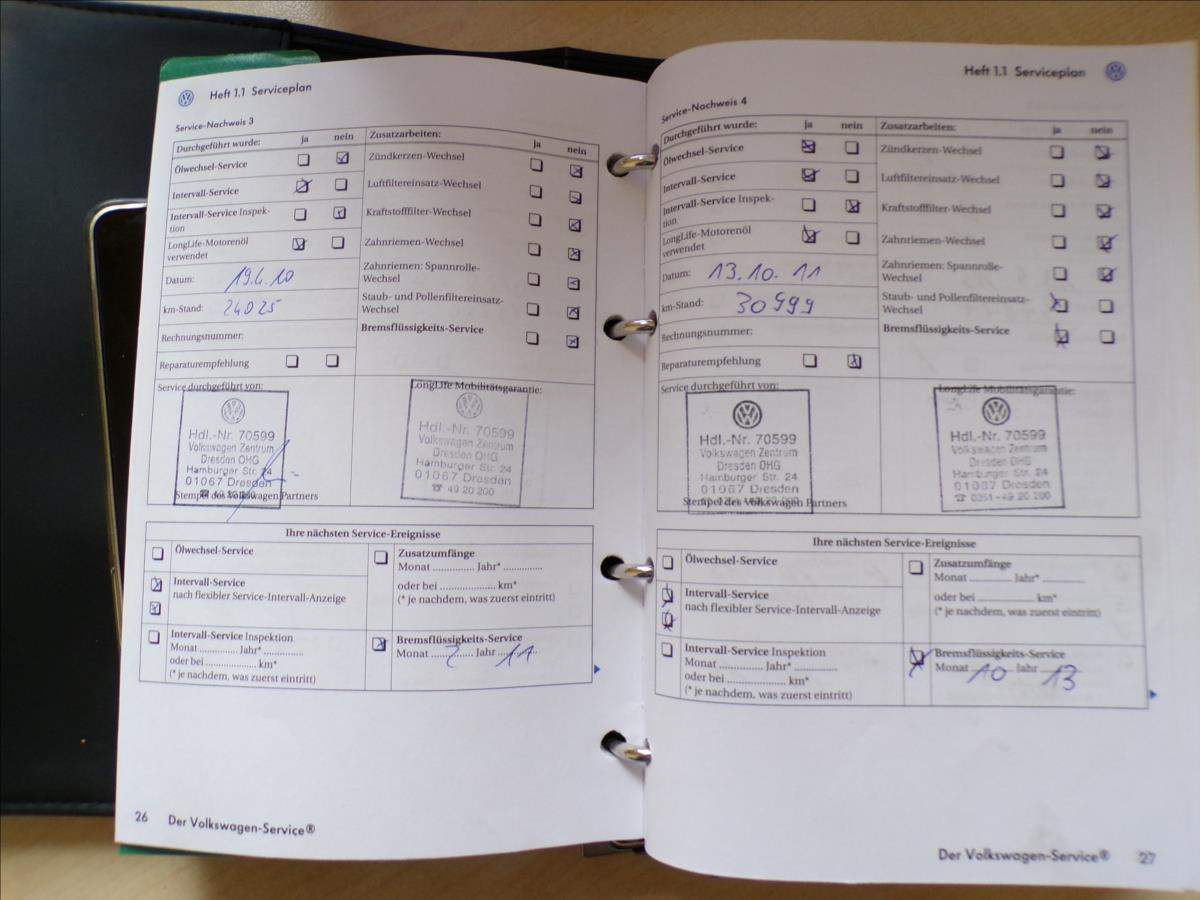 Heft 1.1 Serviceplan
Service-Nachweis 3
Durchgeführt wurde: ja nein
Ölwechsel-Service
Intervall-Service
Intervall-Service Inspek-
tion
LongLife-Motorenöl
verwendet
Datum: 19.4.10
km-Stand: 24025
Rechnungsnummer:
Reparaturempfehlung
Zusatzarbeiten: ja nein
Zündkerzen-Wechsel
Luftfiltereinsatz-Wechsel
Kraftstofffilter-Wechsel
Zahnriemen-Wechsel
Zahnriemen: Spannrolle-
Wechsel
Staub- und Pollenfiltereinsatz-
Wechsel
Bremsflüssigkeits-Service
Service durchgeführt von:
Hdl.-Nr. 70599
Volkswagen Zentrum
Dresden OHG
Hamburger Str. 24
01067 Dresden
Stempel des Volkswagen Partners
LongLife Mobilitätsgarantie:
Hdl.-Nr. 70599
Volkswagen Zentrum
Dresden OHG
Hamburger Str. 24
01067 Dresden
☎ 49 20 200
Ihre nächsten Service-Ereignisse
Ölwechsel-Service
Intervall-Service
nach flexibler Service-Intervall-Anzeige
Intervall-Service Inspektion
Monat .............. Jahr* .............
oder bei ......................... km*
(* je nachdem, was zuerst eintritt)
Zusatzumfänge
Monat .............. Jahr* .............
oder bei ......................... km*
(* je nachdem, was zuerst eintritt)
Bremsflüssigkeits-Service
Monat 2 Jahr 11
26 Der Volkswagen-Service®
Heft 1.1 Serviceplan
Service-Nachweis 4
Durchgeführt wurde: ja nein
Ölwechsel-Service
Intervall-Service
Intervall-Service Inspek-
tion
LongLife-Motorenöl
verwendet
Datum: 13.10.11
km-Stand: 30999
Rechnungsnummer:
Reparaturempfehlung
Zusatzarbeiten: ja nein
Zündkerzen-Wechsel
Luftfiltereinsatz-Wechsel
Kraftstofffilter-Wechsel
Zahnriemen-Wechsel
Zahnriemen: Spannrolle-
Wechsel
Staub- und Pollenfiltereinsatz-
Wechsel
Bremsflüssigkeits-Service
Service durchgeführt von:
Hdl.-Nr. 70599
Volkswagen Zentrum
Dresden OHG
Hamburger Str. 24
01067 Dresden
Stempel des Volkswagen Partners
LongLife Mobilitätsgarantie:
Hdl.-Nr. 70599
Volkswagen Zentrum
Dresden OHG
Hamburger Str. 24
01067 Dresden
☎ 0351 - 49 20 200
Ihre nächsten Service-Ereignisse
Ölwechsel-Service
Intervall-Service
nach flexibler Service-Intervall-Anzeige
Intervall-Service Inspektion
Monat .............. Jahr* .............
oder bei ......................... km*
(* je nachdem, was zuerst eintritt)
Zusatzumfänge
Monat .............. Jahr* .............
oder bei ......................... km*
(* je nachdem, was zuerst eintritt)
Bremsflüssigkeits-Service
Monat 10 Jahr 13
Der Volkswagen-Service® 27